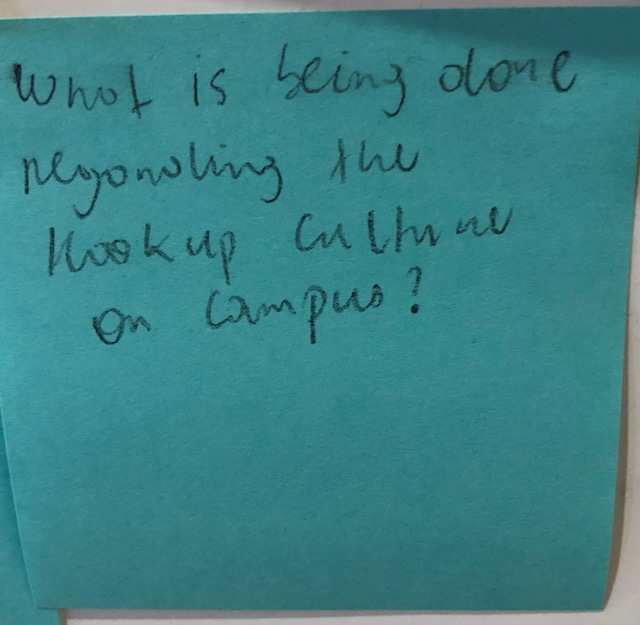 What is being done
regarding the
Hookup culture
on campus?